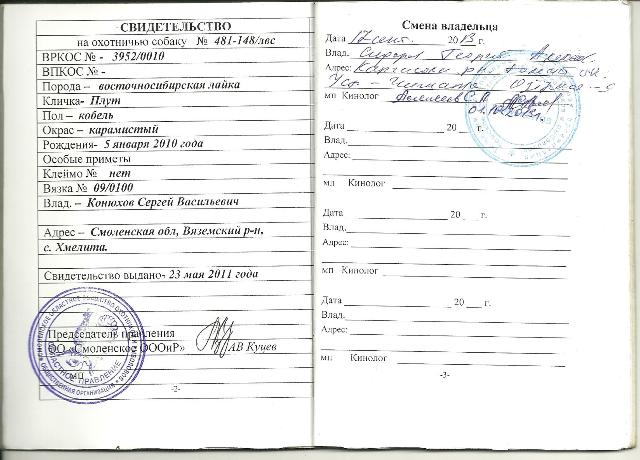 СВИДЕТЕЛЬСТВО
на охотничью собаку № 481-148/лвс
ВРКОС № - 3952/0010
ВПКОС № -
Порода – восточносибирская лайка
Кличка- Плут
Пол – кобель
Окрас – карамистый
Рождения- 5 января 2010 года
Особые приметы
Клеймо № нет
Вязка № 09/0100
Влад. – Конюхов Сергей Васильевич
Адрес – Смоленская обл, Вяземский р-н,
с. Хмелита.
Свидетельство выдано- 23 мая 2011 года
Председатель правления
ОО «Смоленское ОООиР» АВ Куцев
мп
-2-
Смена владельца
Дата 12 сент. 2013 г.
Влад. Георгий
Адрес:
мп Кинолог
01.10.2013г.
Дата 20 г.
Влад.
Адрес:
мп Кинолог
Дата 20 г.
Влад.
Адрес:
мп Кинолог
Дата 20 г.
Влад.
Адрес:
мп Кинолог
-3-